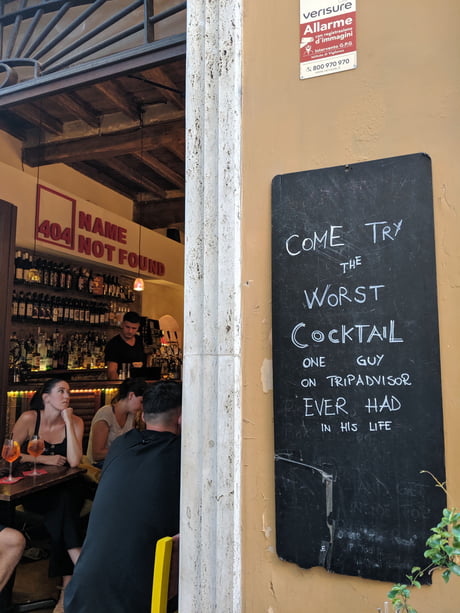 verisure
Allarme
con registrazione
d'immagini
Intervento G.P.G.
800 970 970
404
NAME
NOT FOUND
COME TRY
THE
WORST
COCKTAIL
ONE GUY
ON TRIPADVISOR
EVER HAD
IN HIS LIFE